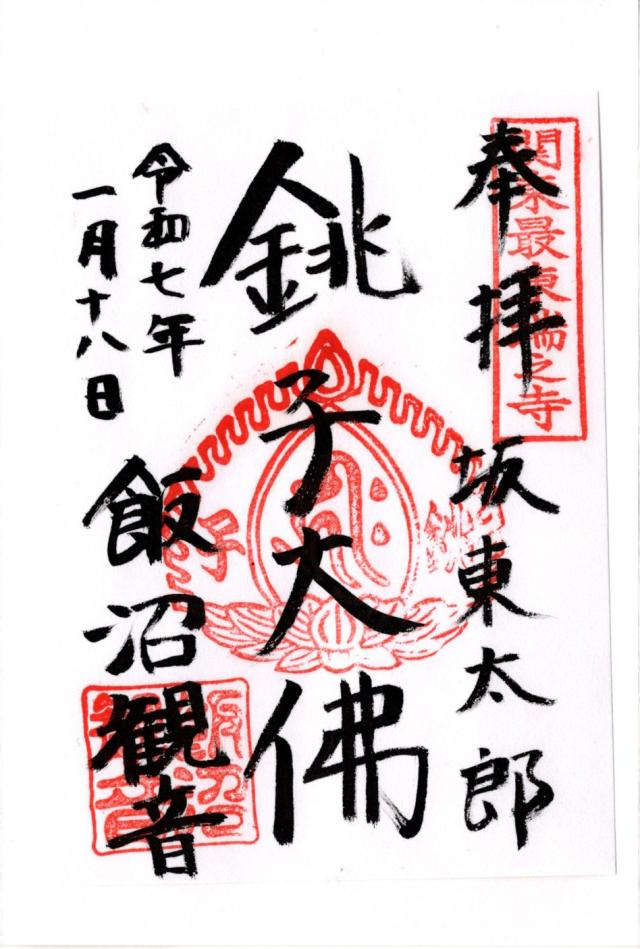 関東最東端之寺
奉拝
坂東太郎
銚子大佛
銚
子
令和七年
一月十八日
飯沼観音
飯沼
観音